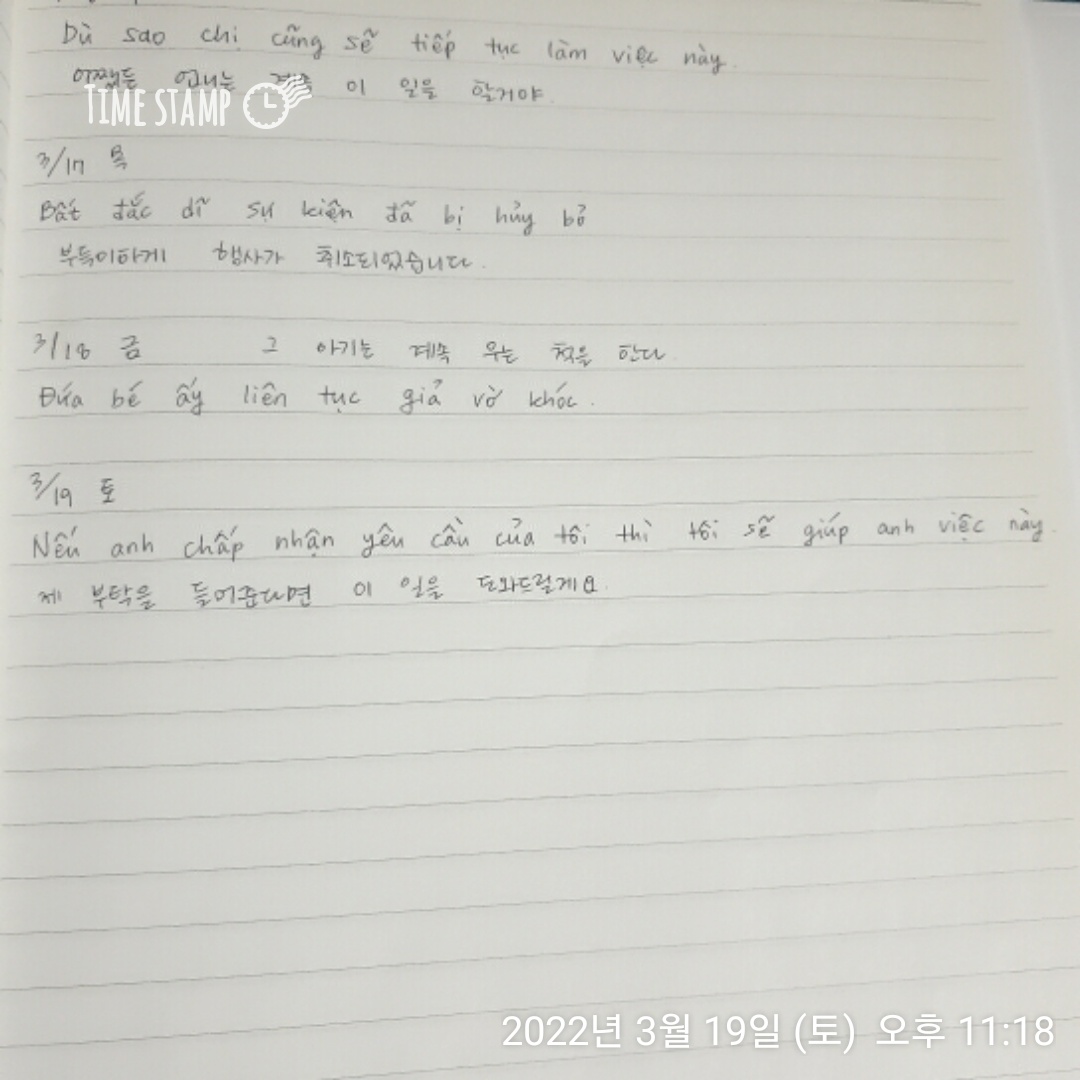 Dù sao chị cũng sẽ tiếp tục làm việc này.
어쨌든 언니는 계속 이 일을 할거야.
TIME STAMP
3/17 목
Bất đắc dĩ sự kiện đã bị hủy bỏ
부득이하게 행사가 취소되었습니다.
3/18 금 그 아기는 계속 우는 척을 한다
Đứa bé ấy liên tục giả vờ khóc.
3/19 토
Nếu anh chấp nhận yêu cầu của tôi thì tôi sẽ giúp anh việc này.
제 부탁을 들어준다면 이 일을 도와드릴게요.
2022년 3월 19일 (토) 오후 11:18